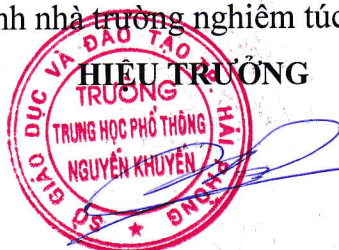 nh nhà trường nghiêm túc
HIỆU TRƯỞNG
SỞ GIÁO DỤC VÀ ĐÀO TẠO TP. HẢI PHÒNG
TRƯỜNG
TRUNG HỌC PHỔ THÔNG
NGUYỄN KHUYẾN